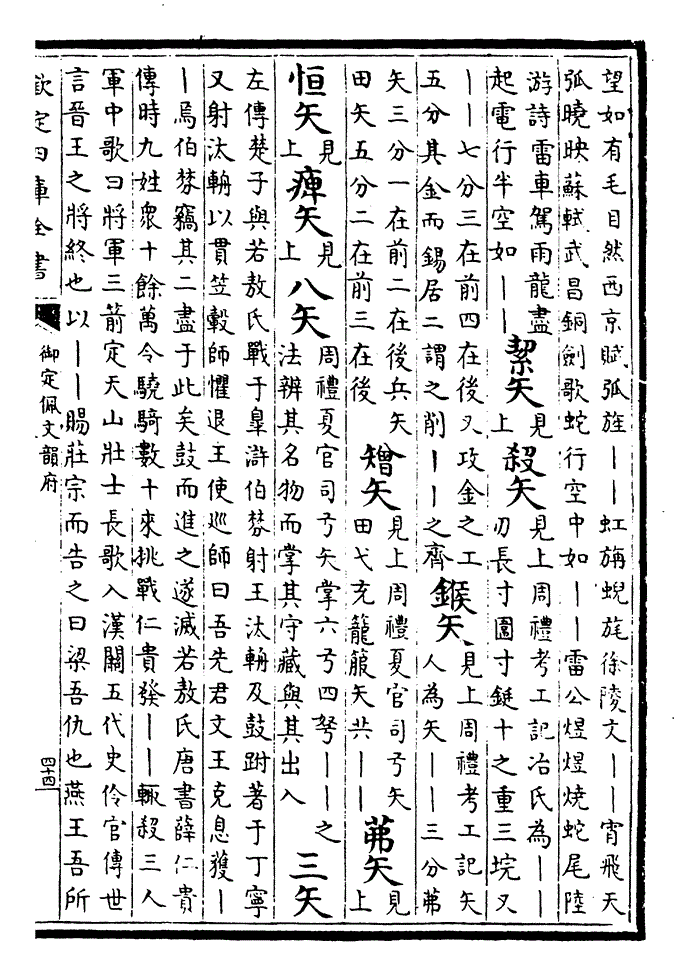 望如有毛目然西京賦弧旌——虹旃蜺旄徐陵文——宵飛天
弧曉映蘇軾武昌銅劍歌蛇行空中如——雷公煜煜燒蛇尾陸
游詩雷車駕雨龍盡
起電行半空如——
絜矢
見上
殺矢
見上周禮考工記冶氏為——
刃長寸圍寸鋌十之重三垸又
——七分三在前四在後又攻金之工
五分其金而錫居二謂之削——之齊
鍭矢
見上周禮考工記矢
人為矢——三分茀
矢三分一在前二在後兵矢
田矢五分二在前三在後
矰矢
見上周禮夏官司弓矢
田弋充籠箙矢共——
茀矢
見上
恒矢
見上
痺矢
見上
八矢
周禮夏官司弓矢掌六弓四弩——之
法辨其名物而掌其守藏與其出入
三矢
左傳楚子與若敖氏戰于皐滸伯棼射王汰輈及鼓跗著于丁寧
又射汰輈以貫笠轂師懼退王使巡師曰吾先君文王克息獲—
—焉伯棼竊其二盡于此矣鼓而進之遂滅若敖氏唐書薛仁貴
傳時九姓衆十餘萬令驍騎數十來挑戰仁貴發——輒殺三人
軍中歌曰將軍三箭定天山壯士長歌入漢關五代史伶官傳世
言晉王之將終也以——賜莊宗而告之曰梁吾仇也燕王吾所
欽定四庫全書
御定佩文韻府
四十四